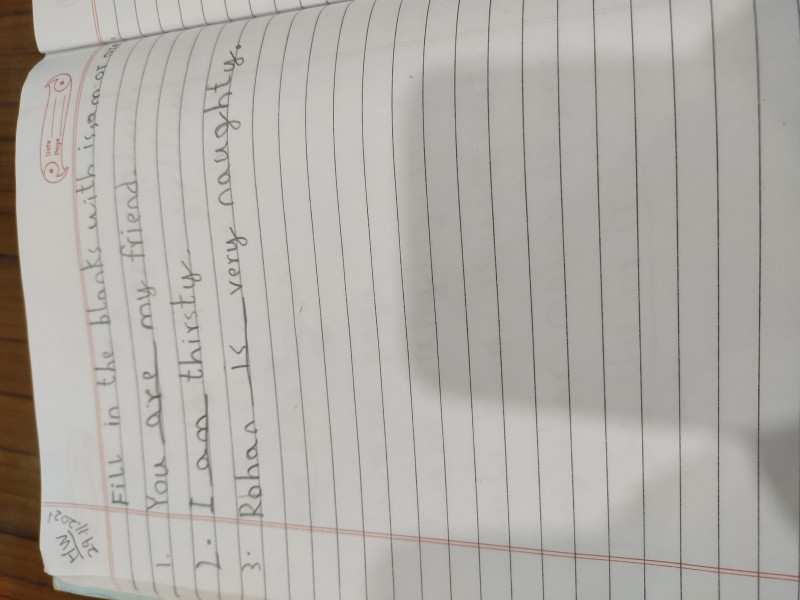 HW
29/11
2021
Date
Page
Fill in the blanks with is, am or are.
1. You are my friend.
2. I am thirsty.
3. Rohan is very naughty.